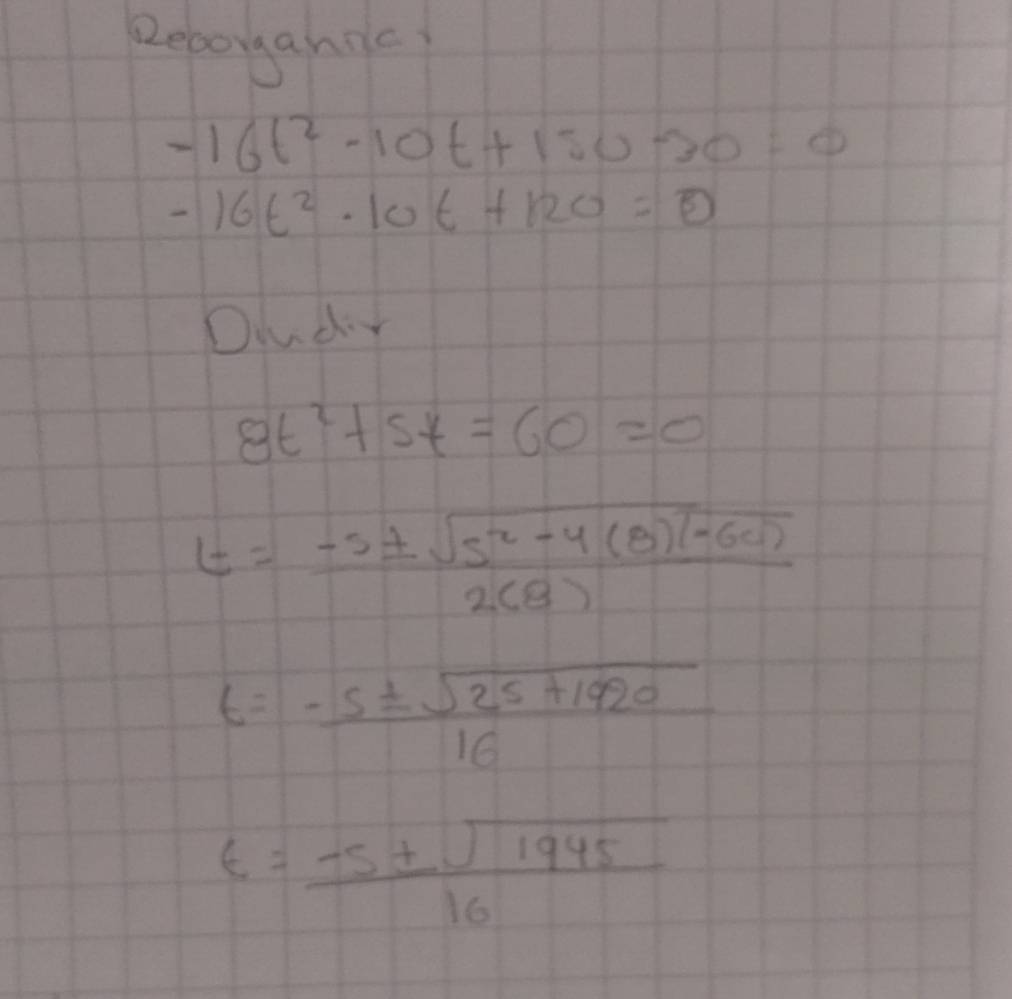 Reoorganizar
-16t² - 10t + 150 - 30 = 0
-16t² - 10t + 120 = 0
Dividir
8t² + 5t = 60 = 0
t = -5 ± √5² - 4(8)(-60)
2(8)
t = -5 ± √25 + 1920
16
t = -5 ± √1945
16